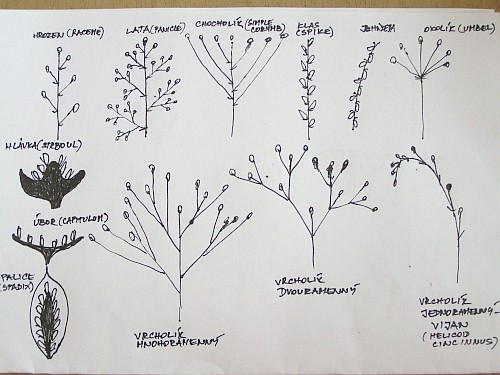 HROZEN (RACEME)
LATA (PANICLE)
CHOCHOLÍK (SIMPLE
CORYMB)
KLAS
(SPIKE)
JEHNĚDA
OKOLÍK (UMBEL)
HLÁVKA
ÚBOR (CAPITULUM)
PALICE
(SPADIX)
VRCHOLÍK
MNOHORAMENNÝ
VRCHOLÍK
DVOURAMENNÝ
VRCHOLÍK
JEDNORAMENNÝ-
VIJAN
(HELICOID
CINCINNUS)